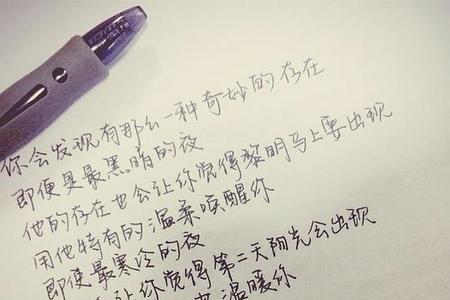 你会发现有那么一种奇妙的存在
即便是最黑暗的夜
他的存在也会让你觉得黎明马上要出现
用他特有的温柔唤醒你
即便最寒冷的夜
会让你觉得第二天阳光会出现
温暖你